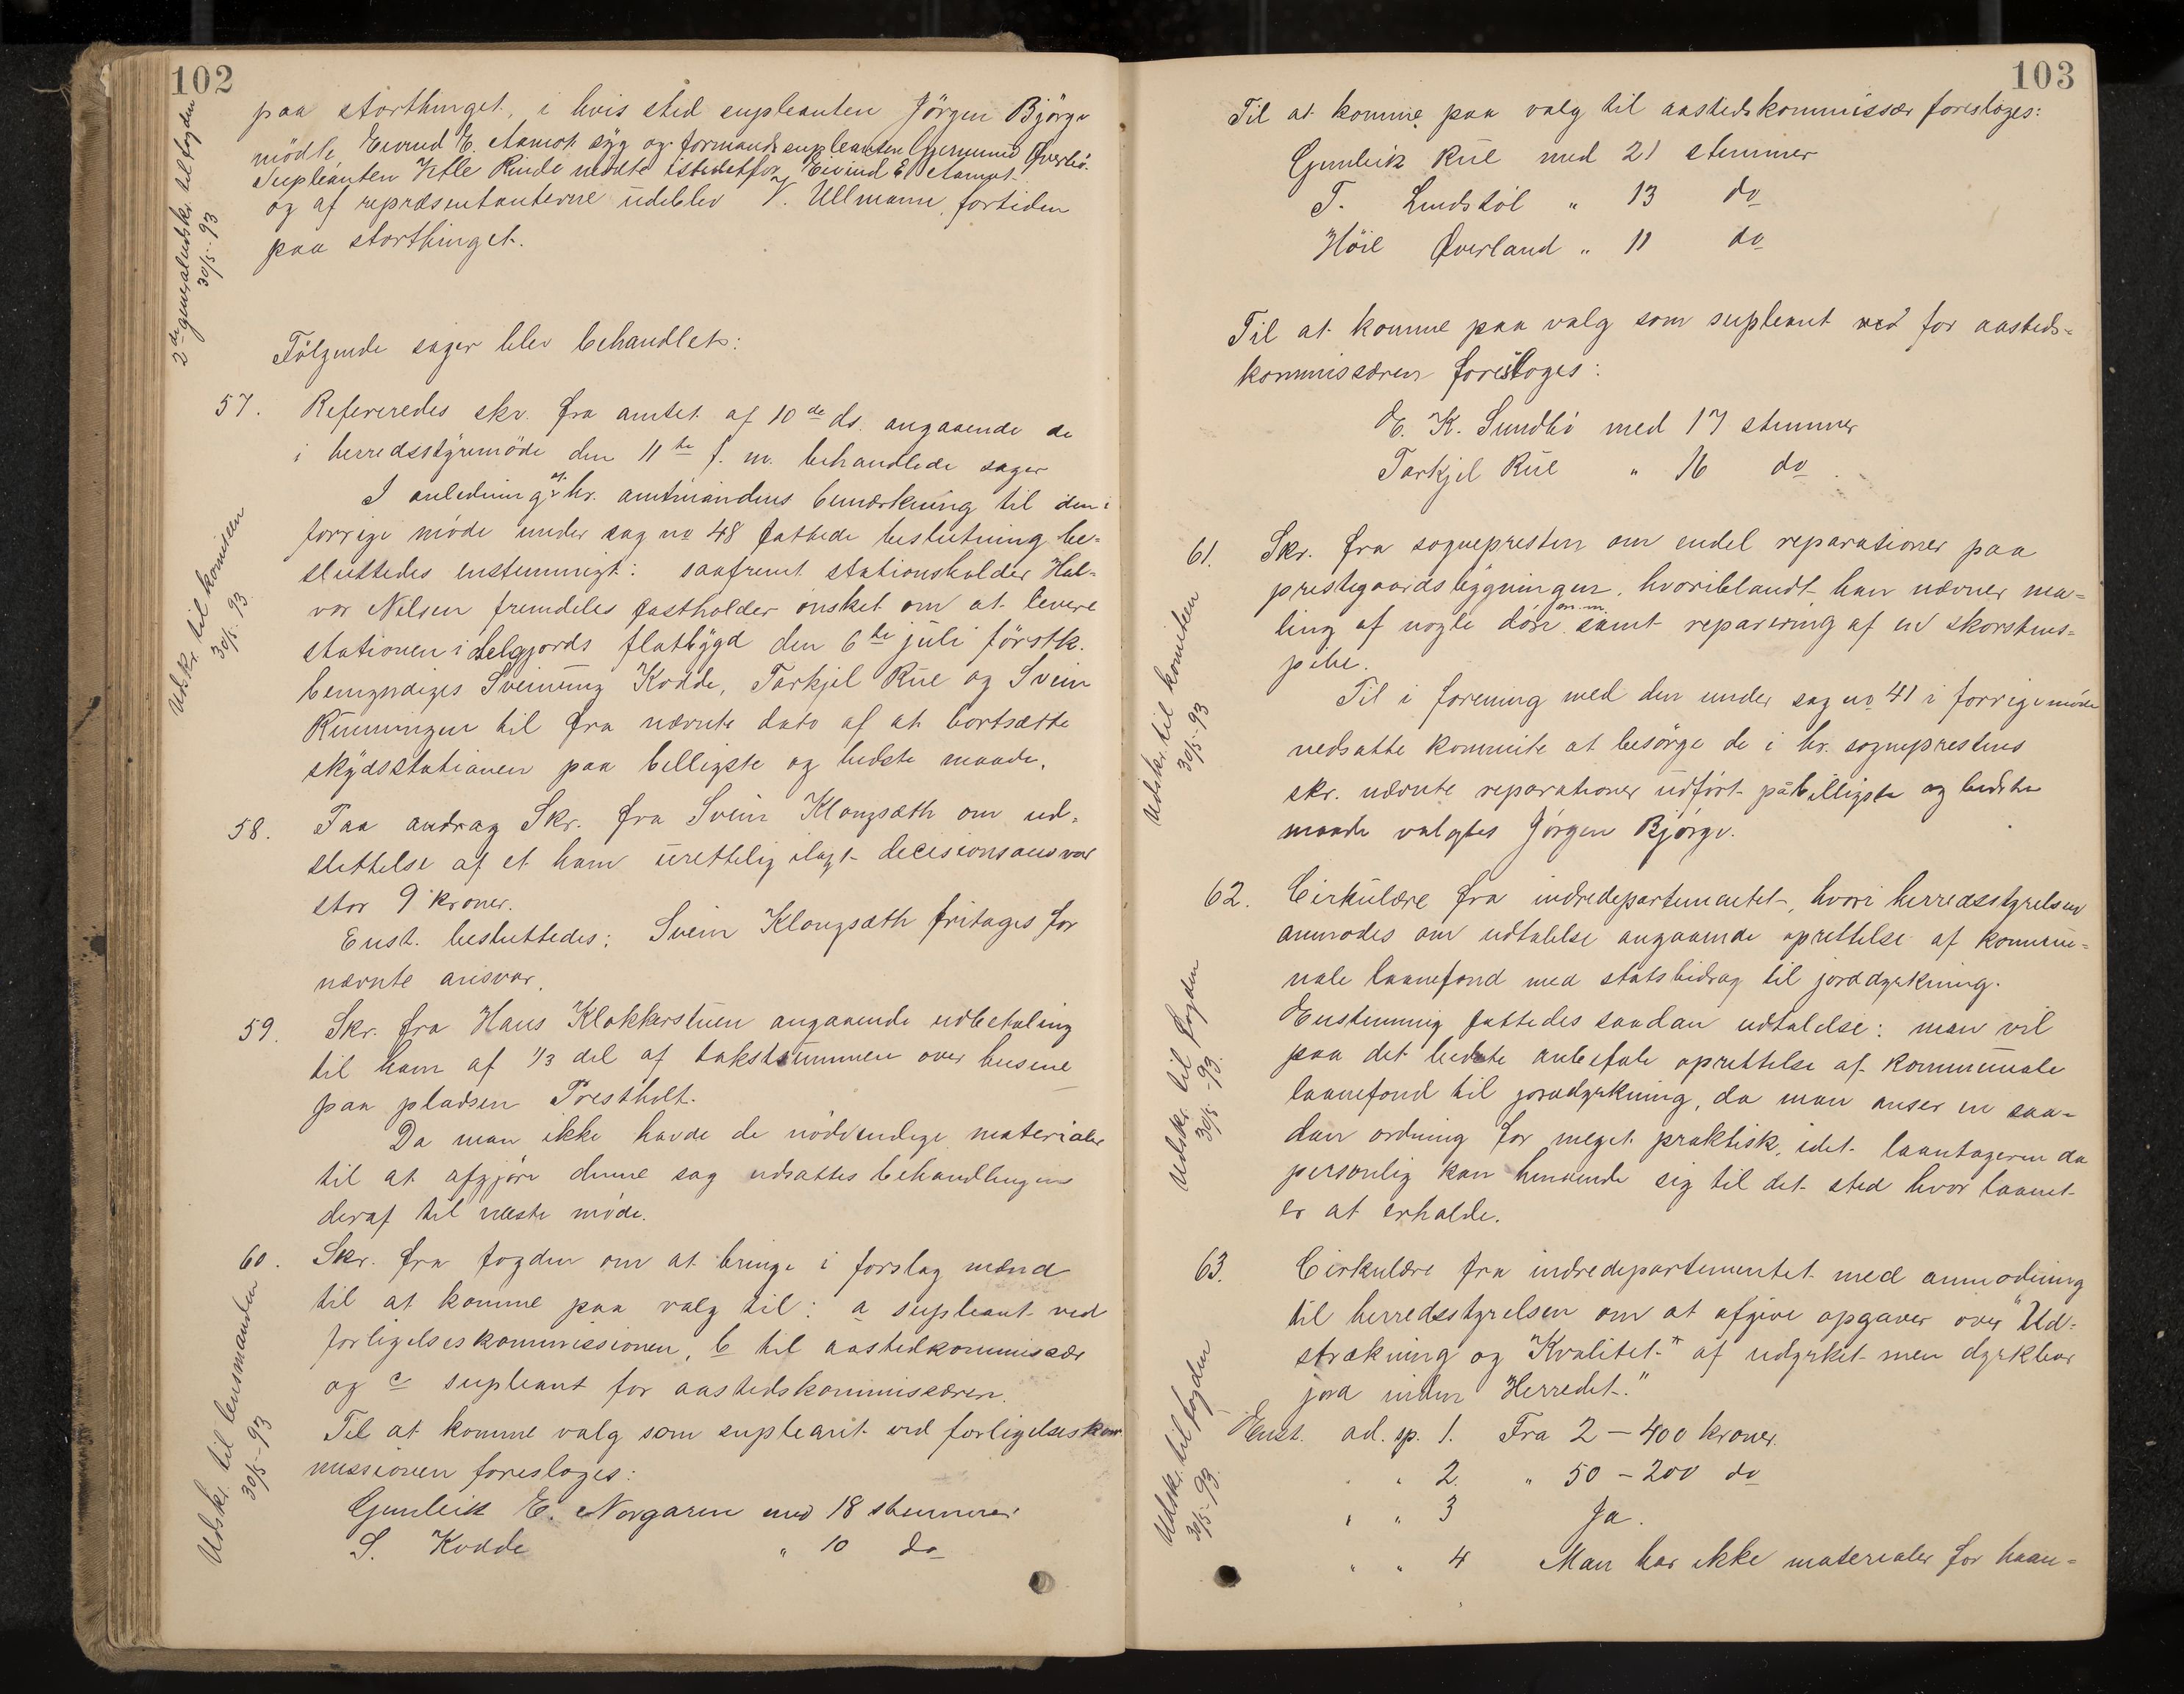 102
paa storthinget, i hvis sted supleanten Jörgen Björge
mödte, Eivind E. Aamot syg og formandssupleanten Gjermund Överbö.
Supleanten Ketle Rinde mödte istedetfor Eivind E. Aamot.
og af repræsentanterne udeblev V. Ullmann, fortiden
paa storthinget.
2de generaludskr. til fogden
30/5-93
Fölgende sager blev behandlet:
57. Refereredes skr. fra amtet af 10de ds. angaaende de
i herredsstyremöde den 11te f. m. behandlede sager
I anledning af hr. amtmandens bemærkning til den i
forrige möde under sag no 48 fattede beslutning be=
sluttedes enstemmigt: saafremt stationsholder Hal=
vor Nilsen fremdeles fastholder önsket om at levere
stationen i Selgjords flatbygd den 6te juli förstk.
bemyndiges Sveinung Kodde, Tarkjel Rue og Svein
Runningen til fra nævnte dato af at bortsætte
skydsstationen paa billigste og bedste maade.
Udskr. til komiteen
30/5-93
58. Paa andrag Skr. fra Svein Klongsæth om ud=
slettelse af et ham urettelig ilagt decisionsansvar
stor 9 kroner.
Enst. besluttedes: Svein Klongsæth fritages for
nævnte ansvar.
59. Skr. fra Hans Klokkerstuen angaaende udbetaling
til ham af 1/3 del af takstsummen over husene
paa pladsen Prestholt.
Da man ikke havde de nödvendige materialer
til at afgjöre denne sag udsattes behandlingen
deraf til næste möde.
60. Skr. fra fogden om at bringe i forslag mænd
til at komme paa valg til: a supleant ved
forligelseskommissionen, b til aastedkommissær
og c supleant for aastedskommissæren.
Til at komme valg som supleant ved forligelseskom
missionen foresloges:
Gunleik E. Norgaren med 18 stemmer
S. Kodde " 10 do
Udskr. til lensmanden
30/5-93
103
Til at komme paa valg til aastedskommissær foresloges:
Gunleik Rue med 21 stemmer
T. Lindstöl " 13 do
Höie Överland " 11 do
Til at komme paa valg som supleant ved for aasteds=
kommissæren foresloges:
E. K. Sundbö med 17 stemmer
Tarkjel Rue " 16 do.
61. Skr. fra sognepresten om endel reparationer paa
prestegaardsbygningen, hvoriblandt han nævner ma=
ling af nogle döre m. m. samt reparering af en skorstens=
pibe.
Til i forening med den under sag no 41 i forrige möde
nedsatte kommite at besörge de i hr. sogneprestens
skr. nævnte reparationer udfört på billigste og bedste
maade valgtes Jörgen Björge.
Udskr. til komiteen
30/5-93
62. Cirkulære fra indredepartementet, hvori herredsstyrelsen
anmodes om udtalelse angaaende oprettelse af kommu=
nale laanefond med statsbidrag til jorddyrkning.
Enstemmig fattedes saadan udtalelse: man vil
paa det bedste anbefale oprettelse af kommunale
laanefond til jorddyrkning, da man anser en saa=
dan ordning for meget praktisk, idet laantageren da
personlig kan henvende sig til det sted hvor laanet
er at erholde.
Udskr. til fogden
30/5-93.
63. Cirkulære fra indredepartementet med anmodning
til herredsstyrelsen om at afgive opgaver over "Ud=
strækning og "Kvalitet" af udyrket men dyrkbar
jord inden "Herredet."
Enst. ad. sp. 1. Fra 2 – 400 kroner.
" " 2. " 50 – 200 do
" " 3 Ja.
" " 4 Man har ikke materialer for haan=
Udskr. til fogden
30/5-93.